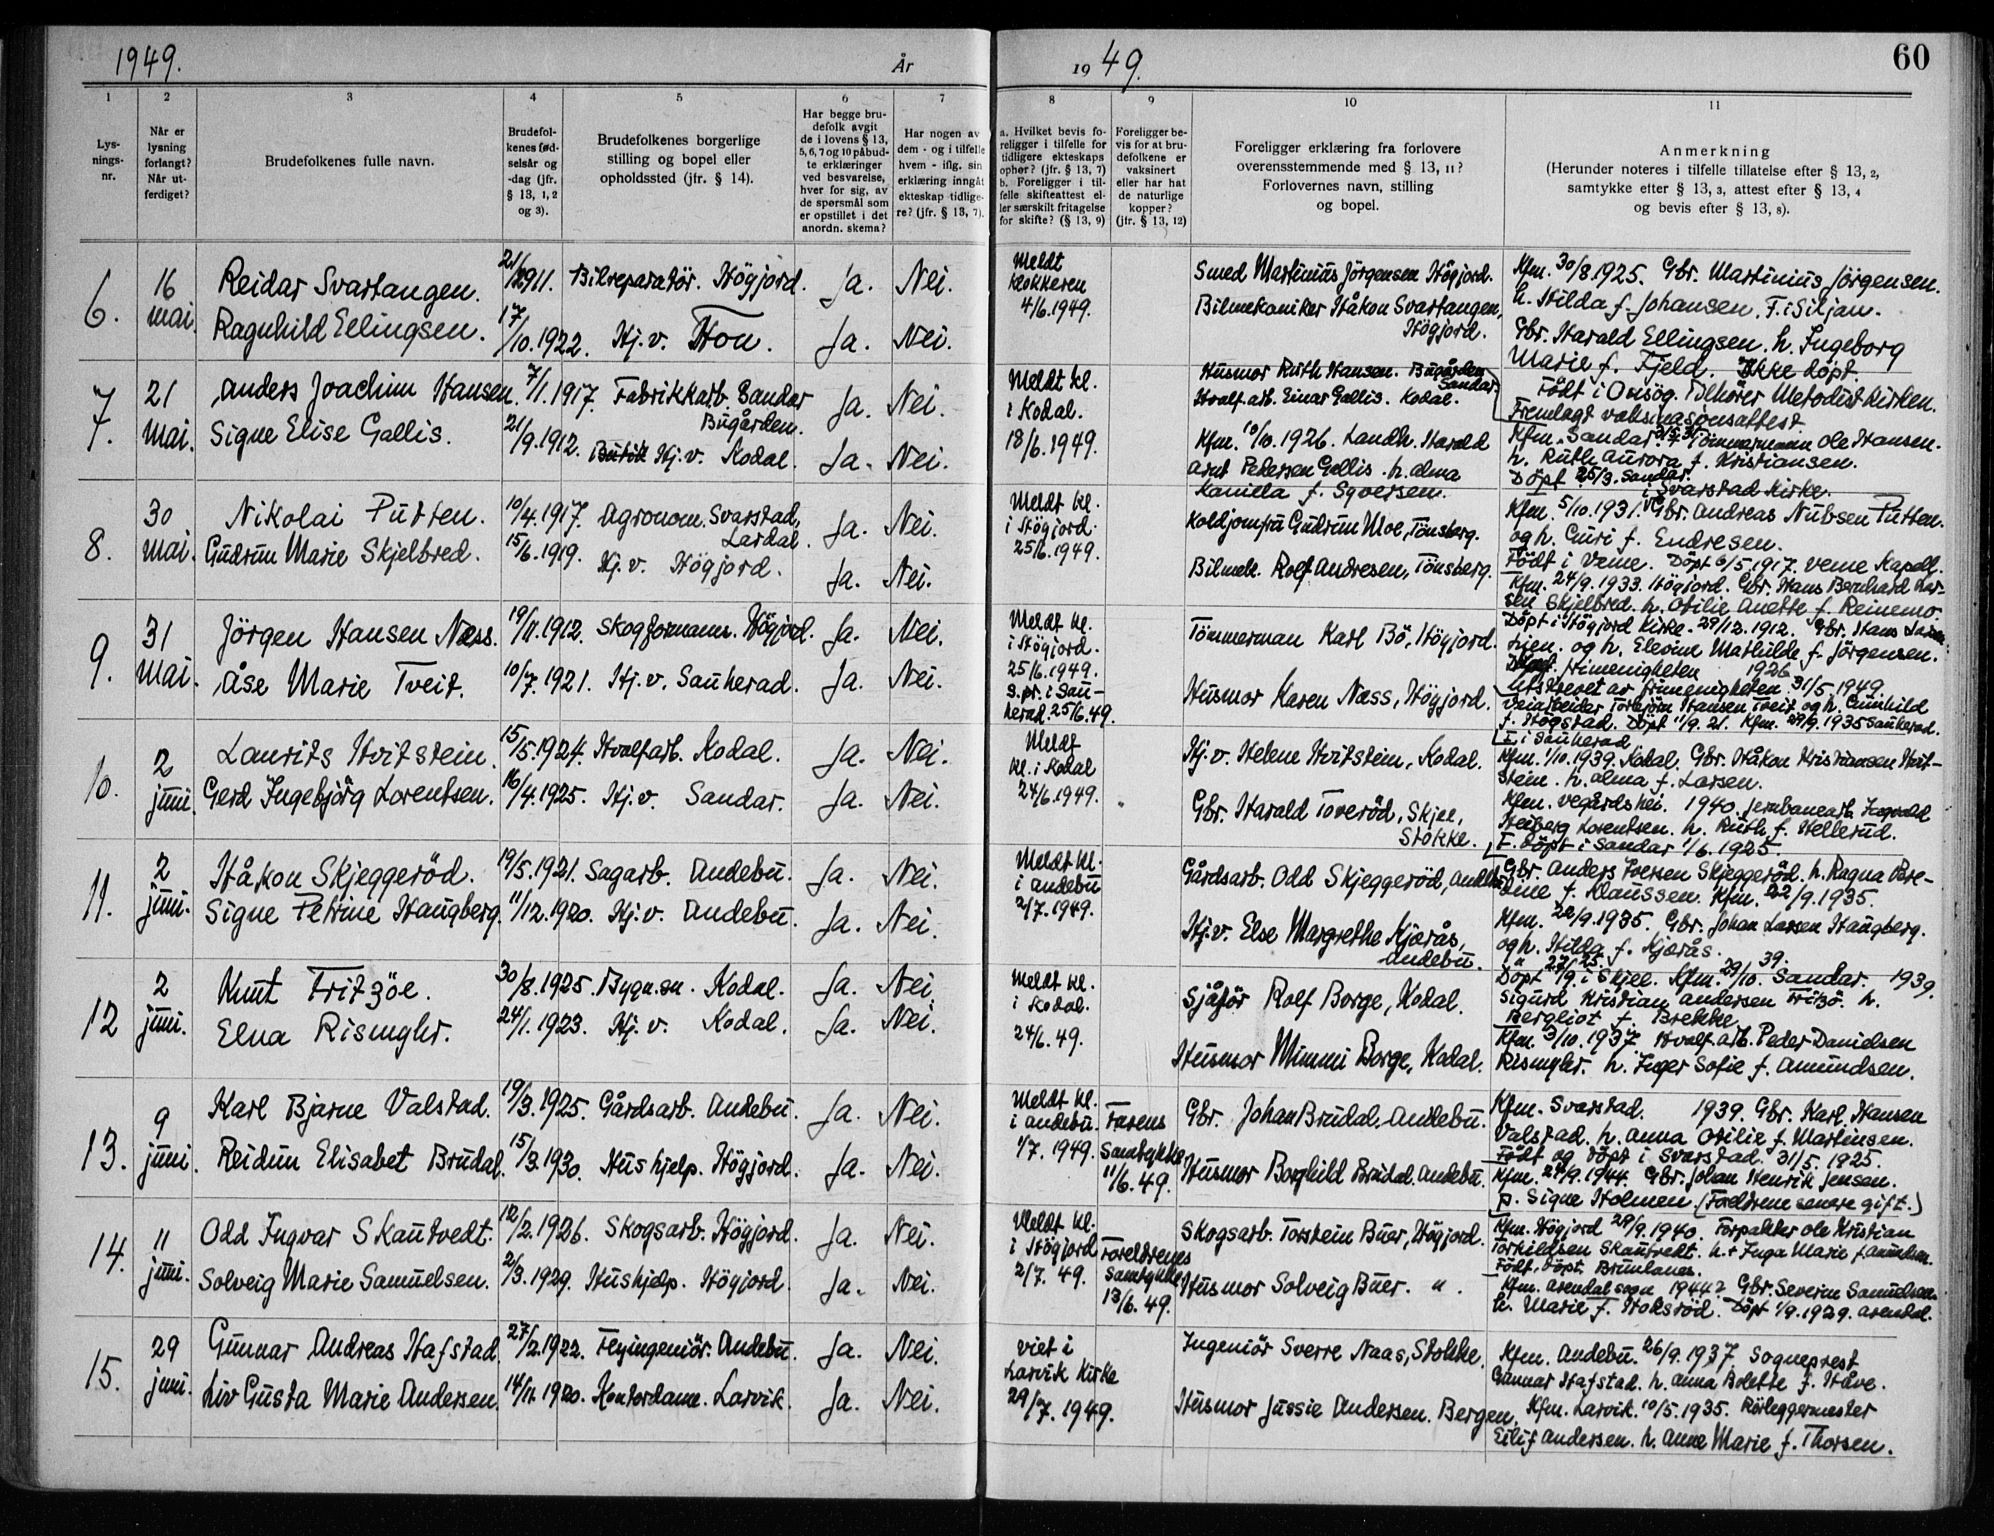 1949.
År
19 49.
60
1
2
3
4
5
6
7
8
9
10
11
Lys-
nings-
nr.
Når er
lysning
forlangt?
Når ut-
ferdiget?
Brudefolkenes fulle navn.
Brudefol-
kenes fød-
selsår og
-dag (jfr.
§ 13, 1, 2
og 3).
Brudefolkenes borgerlige
stilling og bopel eller
opholdssted (jfr. § 14).
Har begge bru-
defolk avgit
de i lovens § 13,
5, 6, 7 og 10 påbud-
te erklæringer
ved besvarelse,
hver for sig, av
de spørsmål som
er opstillet i det
anordn. skema?
Har nogen av
dem - og i tilfelle
hvem - iflg. sin
erklæring inngåt
ekteskap tidlige-
re? (jfr. § 13, 7).
a. Hvilket bevis fo-
religger i tilfelle for
tidligere ekteskaps
ophør? (jfr. § 13, 7)
b. Foreligger i til-
felle skifteattest el-
ler særskilt fritagelse
for skifte? (§ 13, 9)
Foreligger be-
vis for at bru-
defolkene er
vaksinert
eller har hat
de naturlige
kopper?
(jfr. § 13, 12)
Foreligger erklæring fra forlovere
overensstemmende med § 13, 11?
Forlovernes navn, stilling
og bopel.
Anmerkning
(Herunder noteres i tilfelle tillatelse efter § 13, 2,
samtykke etter § 13, 3, attest efter § 13, 4
og bevis efter § 13, 8).
6.
16
mai
Reidar Svartangen.
21/12 1911. Bilreparatør. Högjord.
Ja. Nei.
Ragnhild Ellingsen.
17/10.1922. Hj.v. Hon.
Ja. Nei.
Meldt
klokkeren
4/6.1949.
Smed Martinius Jörgensen Högjord.
Bilmekaniker Håkon Svartangen,
Högjord.
Kfm. 30/8.1925. Gbr. Martinius Jörgensen.
h. Hilda f. Johansen. F. i Siljan.
Gbr. Harald Ellingsen. h. Ingeborg
Marie f. Fjeld. Ikke döpt.
7.
21
mai.
Anders Joachim Hansen. 7/1.1917. Fabrikkarb. Sandar
Bugården.
Ja. Nei.
Signe Elise Gallis.
21/9.1912. Hj.v. Kodal.
Ja. Nei.
Meldt kl.
i Kodal.
18/6.1949.
Husmor Ruth Hansen. Bugården
Sandar.
Hvalf.arb. Einar Gallis. Kodal.
Kfm. 10/10.1926. Landh. Harald
Arnt Pedersen Gallis. h. Alma
Kamilla f. Syversen.
Tilhörer Metodistkirken.
Fremlagt vaksinasjonsattest
Kfm. Sandar. Tömmermann Ole Hansen.
h. Ruth Aurora f. Kristiansen.
Döpt 25/3. Sandar.
i Svarstad Kirke.
8.
30
mai.
Nikolai Putten.
10/4.1917. Agronom. Svarstad,
Lardal.
Ja. Nei.
Gudrun Marie Skjelbred.
15/6.1919. Hj.v. Högjord.
Ja. Nei.
Meldt kl.
i Högjord.
25/6.1949.
Koldjomfru Gudrun Moe, Tönsberg.
Bilmek. Rolf Andresen, Tönsberg.
Kfm. 5/10.1931. Gbr. Andreas Nubsen Putten.
og h. Guri f. Endresen.
Födt i Veme. Döpt 6/5.1917. Veme Kapell.
Kfm. 24/9.1933. Högjord. Gbr. Hans Bernhard Lar-
sen Skjelbred. h. Otilie Anette f. Reinemo
9.
31
mai.
Jörgen Hansen Næss.
19/11.1912. Skogformann. Högjord.
Ja. Nei.
Åse Marie Tveit.
10/7.1921. Hj.v. Sauherad.
Ja. Nei.
Meldt kl.
i Högjord.
25/6.1949.
s.pr. i Sau-
herad. 25/6.49.
Tömmerman Karl Bö, Högjord.
Husmor Karen Næss, Högjord.
Döpt i Högjord Kirke. 29/12.1912. Gbr. Hans
og h. Elevine Mathilde f. Jörgensen.
1926
31/5.1949.
Veiarbeider Torbjörn Hansen Tveit og h. Gunhild
f. Högstad. Döpt 11/9.21. Kfm. 29/9.1935 Sauherad.
F. i Sauherad
10.
2
juni.
Laurits Hvitstein.
15/5.1924. Hvalfarb. Kodal.
Ja. Nei.
Gerd Ingebjörg Lorentsen. 16/4.1925. Hj.v. Sandar.
Ja. Nei.
Meldt
kl. i Kodal
24/6.1949.
Hj.v. Helene Hvitstein, Kodal.
Gbr. Harald Toveröd, Skjee,
Stokke.
Kfm. 1/10.1939. Kodal. Gbr. Håkon Kristiansen Hvit-
stein. h. Alma f. Larsen.
Kfm. Vegårdshei. 1940. Jernbanearb. Ingvald
Heiberg Lorentsen. h. Ruth f. Hellerud.
F. Döpt i Sandar 1/6.1925.
11.
2
juni.
Håkon Skjeggeröd.
19/5.1921. Sagarb. Andebu.
Ja. Nei.
Signe Petrine Haugberg. 11/12.1920. Hj.v. Andebu.
Ja. Nei.
Meldt kl.
i Andebu
2/7.1949.
Gårdsarb. Odd Skjeggeröd, Andebu
Hj.v. Else Margrethe Kjærås,
Andebu.
Gbr. Anders Iversen Skjeggeröd. h. Ragna Bre-
dine f. Klaussen. Kfm. 22/9.1935.
Kfm. 22/9.1935. Gbr. Johan Larsen Haugberg.
og h. Hilda f. Kjærås.
12
2
juni.
Knut Fritzöe.
30/8.1925. Bygn.sn. Kodal.
Ja. Nei.
Elna Rismyhr.
24/1.1923. Hj.v. Kodal.
Ja. Nei.
Meldt kl.
i Kodal.
24/6.49.
Sjåför Rolf Borge, Kodal.
Husmor Mimmi Borge, Kodal.
Döpt 27/9.25. i Skjee. Kfm. 29/10.39. Sandar. 1939.
Sigurd Kristian Andersen Fritzö. h.
Bergliot f. Brekke.
Kfm. 3/10.1937. Hvalf.arb. Peder Danielsen
Rismyhr. h. Inger Sofie f. Amundsen.
13.
9
juni.
Karl Bjarne Valstad.
19/3.1925. Gårdsarb. Andebu.
Ja. Nei.
Reidun Elisabet Brudal.
15/3.1930. Hushjelp. Högjord.
Ja. Nei.
Meldt kl.
i Andebu.
1/7.1949.
Farens
Samtykke
11/6.49.
Gbr. Johan Brudal, Andebu.
Husmor Borghild Brudal. Andebu.
Kfm. Svarstad. 1939. Gbr. Karl Hansen
Valstad. h. Anna Otilie f. Martinsen.
Födt og döpt i Svarstad. 31/5.1925.
Kfm. 24/9.1944. Gbr. Johan Henrik Jensen.
p. Signe Holmen (Foreldrene senere gift.)
14.
11
juni.
Odd Ingvar Skautvedt.
12/2.1926. Skogsarb. Högjord.
Ja. Nei.
Solveig Marie Samuelsen.
2/3.1929. Hushjelp. Högjord.
Ja. Nei.
Meldt kl.
i Högjord
2/7.49.
Foreldrenes
Samtykke
13/6.49.
Skogsarb. Torstein Buer, Högjord.
Husmor Solveig Buer. " .
Kfm. Högjord 29/9.1940. Forpakter Ole Kristian
Torkildsen Skautvedt. h. + Inga Marie f. Amundsen.
Födt, döpt Brunlanes.
Kfm. Arendal sogn 1944? Gbr. Severin Samuelsen
h. Marie f. Hoksröd. Döpt 1/9.1929. Arendal.
15.
29
juni.
Gunnar Andreas Hafstad.
27/2.1922. Flyingeniör. Andebu.
Ja. Nei.
Liv Gusta Marie Andersen. 14/11.1920. Kontordame. Larvik.
Ja. Nei.
viet i
Larvik Kirke
29/7.1949.
Ingeniör Sverre Naas, Stokke.
Husmor Jussie Andersen. Bergen.
Kfm. Andebu. 26/9.1937. Sogneprest
Gunnar Hafstad. h. Anna Bolette f. Håve.
Kfm. Larvik. 10/5.1935. Rörleggermester
Eilif Andersen. h. Anne Marie f. Thorsen.